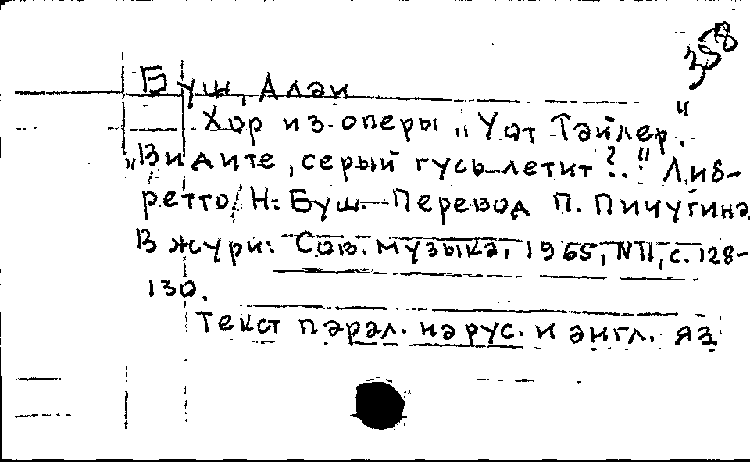 358
Буш, Алан
Хор из оперы „Уот Тайлер."
„Видите, серый гусь летит?.." Либ-
ретто Н. Буш. Перевод П. Пичугина
В журн: Сов. музыка, 1965, N11, с. 128-
130.
Текст парал. на рус. и англ. яз